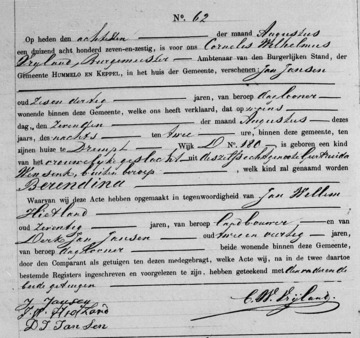 No. 62
Op heden den achtsten der maand Augustus
een duizend acht honderd zeven-en-zestig, is voor ons Cornelis Wilhelmus
Vrijland, Burgemeester Ambtenaar van den Burgerlijken Stand, der
Gemeente HUMMELO EN KEPPEL, in het huis der Gemeente, verschenen: Jan Jansen
oud Zes en dertig jaren, van beroep
wonende binnen deze Gemeente, welke ons heeft verklaard, dat op woens
dag, den Zevenden der maand Augustus dezes
jaars, des nachts ten twee ure, binnen deze gemeente, ten
zijnen huize te Drempt Wijk D No. 180 is geboren een kind
van het vrouwelijk geslacht uit Geertruida
Wensink, zonder beroep, welk kind zal genaamd worden
Berendina
Waarvan wij deze Acte hebben opgemaakt in tegenwoordigheid van Jan Willem
Hietland
oud Zeventig jaren, van beroep Landbouwer en van
Derk Jan Jansen oud twee en veertig jaren,
van beroep Daglooner beide wonende binnen deze Gemeente,
door den Comparant als getuigen ten dezen medegebragt, welke Acte wij, na in de twee daartoe
bestemde Registers ingeschreven en voorgelezen te zijn, hebben geteekend met
beide getuigen
J. Jansen
J. W. Hietland
D J Jansen
C. W. Vrijland.